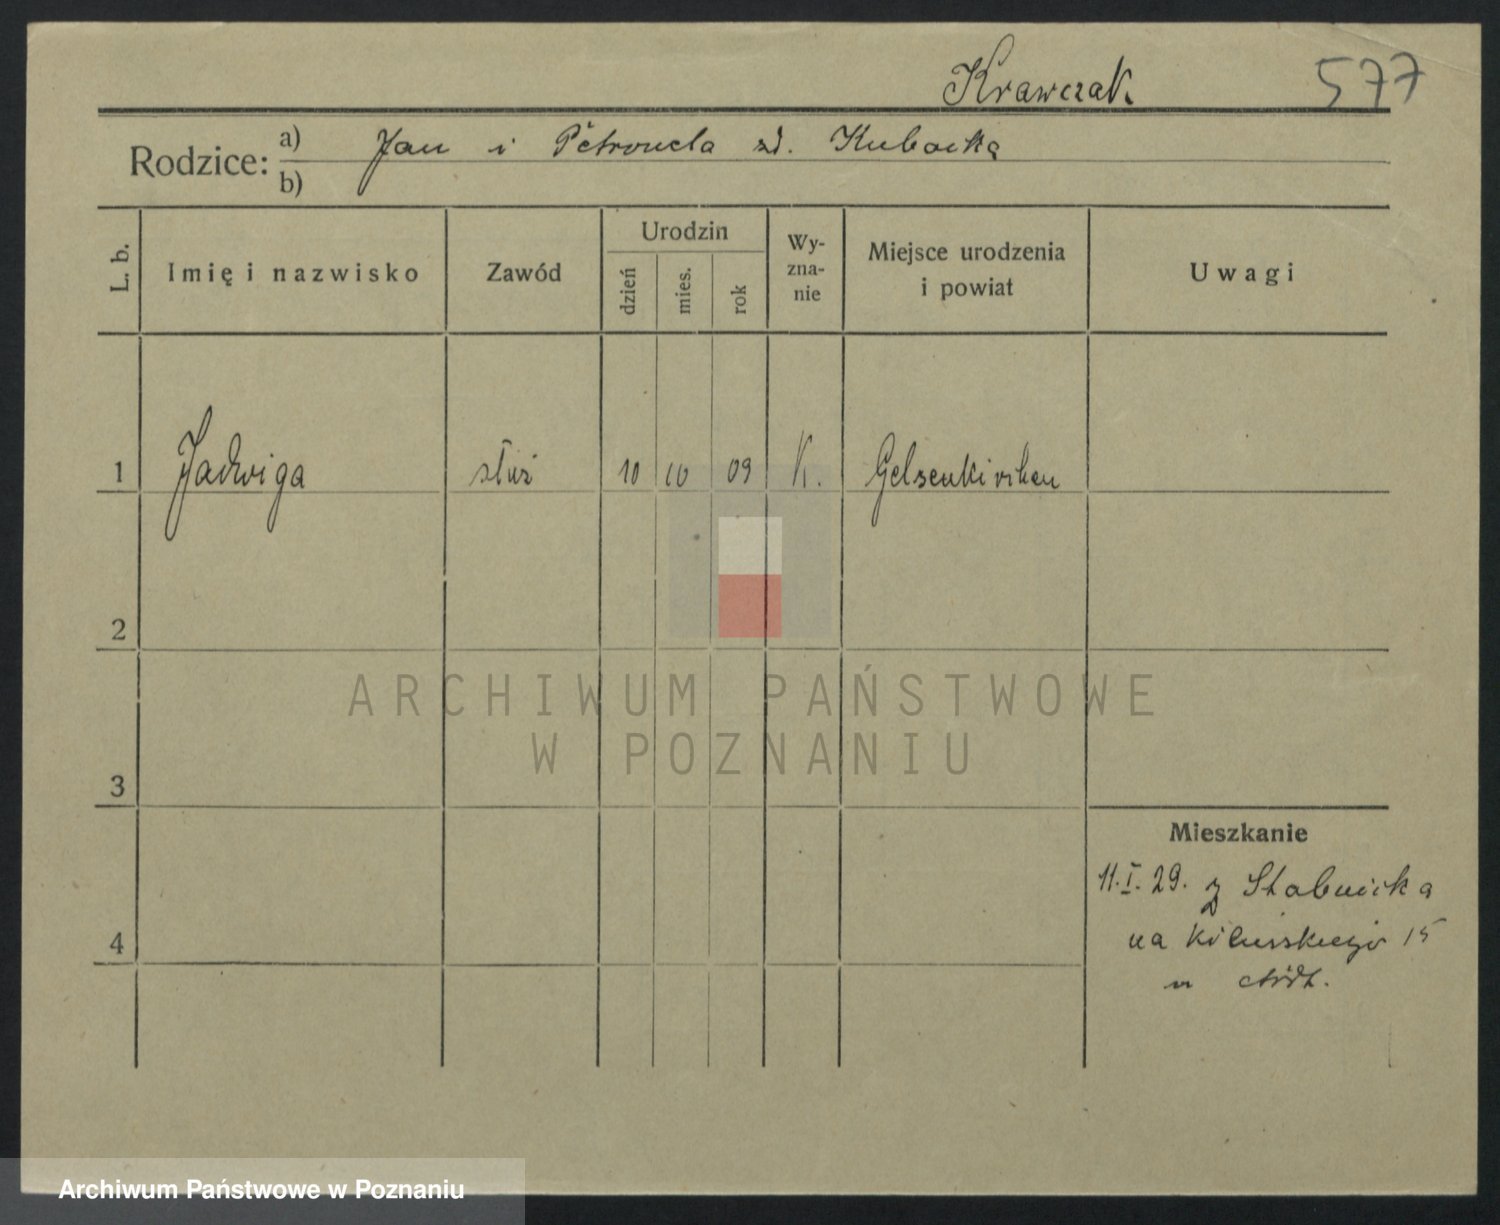 Krawczak
577
Rodzice:
a) Jan i Petronela zd. Kubacka
b)
L. b.
Imię i nazwisko
Zawód
Urodzin
dzień
mies.
rok
Wy-
zna-
nie
Miejsce urodzenia
i powiat
Uwagi
1 Jadwiga służ 10 10 09 K. Gelsenkirchen
2
3
4
Mieszkanie
11.I.29. z Słabnicka
na Kilińskiego 15
u
ARCHIWUM PAŃSTWOWE
W POZNANIU
Archiwum Państwowe w Poznaniu